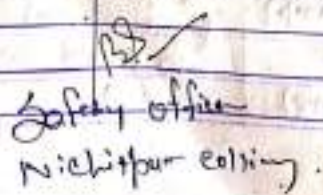 Safety officer
Nichitpur colliery.